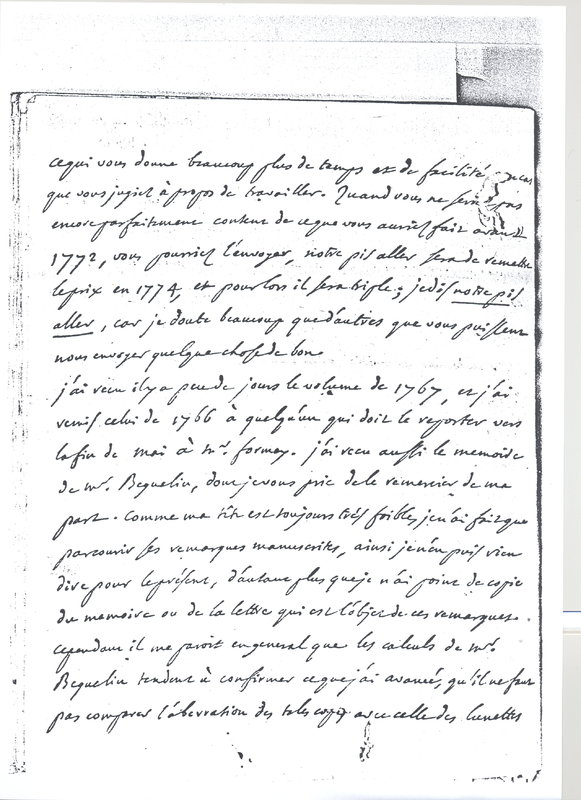 ce qui vous donne beaucoup plus de temps et de facilité, en cas
que vous jugiez à propos de travailler. Quand vous ne seriez pas
encore parfaitement content de ce que vous auriez fait avant
1772, vous pourriez l'envoyer, notre pis aller sera de remettre
le prix en 1774, et pour lors il sera triple; je dis notre pis
aller, car je doute beaucoup que d'autres que vous puissent
nous envoyer quelque chose de bon.
j'ai reçu il y a peu de jours le volume de 1767, et j'ai
remis celui de 1766 à quelqu'un qui doit le reporter vers
la fin de mai à Mr. formey. j'ai reçu aussi le memoire
de Mr. Beguelin, dont je vous prie de le remercier de ma
part. Comme ma tête est toujours très foible, je n'ai fait que
parcourir ses remarques manuscrites, ainsi je n'en puis rien
dire pour le présent, d'autant plus que je n'ai point de copie
du memoire ou de la lettre qui est l'objet de ces remarques.
cependant il me paroit en general que les calculs de Mr.
Beguelin tendent à confirmer ce que j'ai avancé, qu'il ne faut
pas comparer l'aberration des telescopes avec celle des lunettes